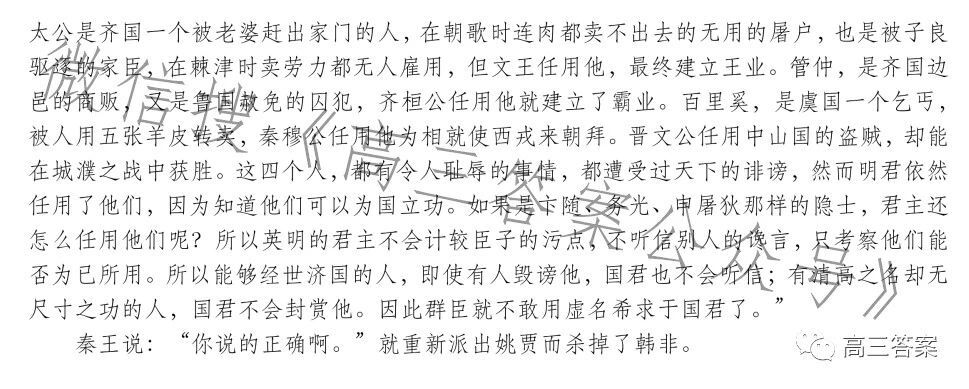 太公是齐国一个被老婆赶出家门的人，在朝歌时连肉都卖不出去的无用的屠户，也是被子良
驱逐的家臣，在棘津时卖劳力都无人雇用，但文王任用他，最终建立王业。管仲，是齐国边
邑的商贩，又是鲁国赦免的囚犯，齐桓公任用他就建立了霸业。百里奚，是虞国一个乞丐，
被人用五张羊皮转卖，秦穆公任用他为相就使西戎来朝拜。晋文公任用中山国的盗贼，却能
在城濮之战中获胜。这四个人，都有令人耻辱的事情，都遭受过天下的诽谤，然而明君依然
任用了他们，因为知道他们可以为国立功。如果是卞随、务光、申屠狄那样的隐士，君主还
怎么任用他们呢？所以英明的君主不会计较臣子的污点，不听信别人的谗言，只考察他们能
否为己所用。所以能够经世济国的人，即使有人毁谤他，国君也不会听信；有清高之名却无
尺寸之功的人，国君不会封赏他。因此群臣就不敢用虚名希求于国君了。”
秦王说：“你说的正确啊。”就重新派出姚贾而杀掉了韩非。
微信搜《高三答案公众号》
高三答案